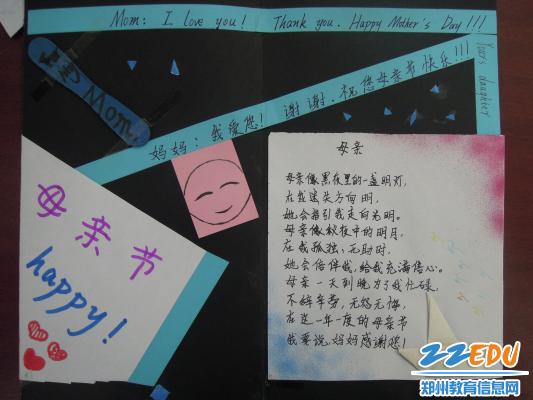 Mom: I love you! Thank you. Happy Mother's Day!!!
Yours daughter
Mom
妈妈:我爱您!谢谢.祝您母亲节快乐!!!
母亲节
happy!
母亲
母亲像黑夜里的一盏明灯,
在我迷失方向时,
她会指引我走向光明。
母亲像秋夜中的明月,
在我孤独、无助时,
她会陪伴我,给我充满信心。
母亲一天到晚为了我忙碌,
不辞辛劳,无怨无悔,
在这一年一度的母亲节
我要说,妈妈感谢您!
ZZEDU
郑州教育信息网